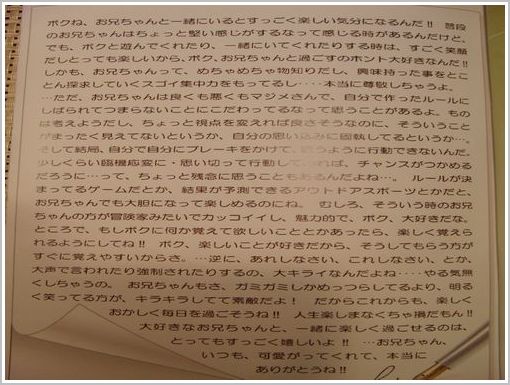 ボクね、お兄ちゃんと一緒にいるとすっごく楽しい気分になるんだ!! 普段
のお兄ちゃんはちょっと堅い感じがするなって感じる時があるんだけど、
でも、ボクと遊んでくれたり、一緒にいてくれたりする時は、すごく笑顔
だしとっても楽しいから、ボク、お兄ちゃんと過ごすのホント大好きなんだ!!
しかも、お兄ちゃんって、めちゃめちゃ物知りだし、興味持った事をとこ
とん探求していくスゴイ集中力をもってるし‥‥本当に尊敬しちゃうよ。
…ただ、お兄ちゃんは良くも悪くもマジメさんで、自分で作ったルールに
しばられてつまらないことにこだわってるなって思うことがあるよ。もの
は考えようだし、ちょっと視点を変えれば良さそうなのに、そういうこと
がまったく見えてないというか、自分の思い込みに固執してるというか…。
そして結局、自分で自分にブレーキをかけて、思うように行動できないんだ。
少しくらい臨機応変に・思い切って行動して れば、チャンスがつかめる
だろうに…って、ちょっと残念に思うこともあるんだよね…。 ルールが決
まってるゲームだとか、結果が予測できるアウトドアスポーツとかだと、
お兄ちゃんでも大胆になって楽しめるのにね。 むしろ、そういう時のお兄
ちゃんの方が冒険家みたいでカッコイイし、魅力的で、ボク、大好きだな。
ところで、もしボクに何か覚えて欲しいこととかあったら、楽しく覚えら
れるようにしてね!! ボク、楽しいことが好きだから、そうしてもらう方が
すぐに覚えやすいからさ。…逆に、あれしなさい、これしなさい、とか、
大声で言われたり強制されたりするの、大キライなんだよね‥‥やる気無
くしちゃうの。 お兄ちゃんもさ、ガミガミしかめっつらしてるより、明る
く笑ってる方が、キラキラしてて素敵だよ! だからこれからも、楽しく
おかしく毎日を過ごそうね!! 人生楽しまなくちゃ損だもん!!
大好きなお兄ちゃんと、一緒に楽しく過ごせるのは、
とってもすっごく嬉しいよ!! …お兄ちゃん、
いつも、可愛がってくれて、本当に
ありがとうね!!